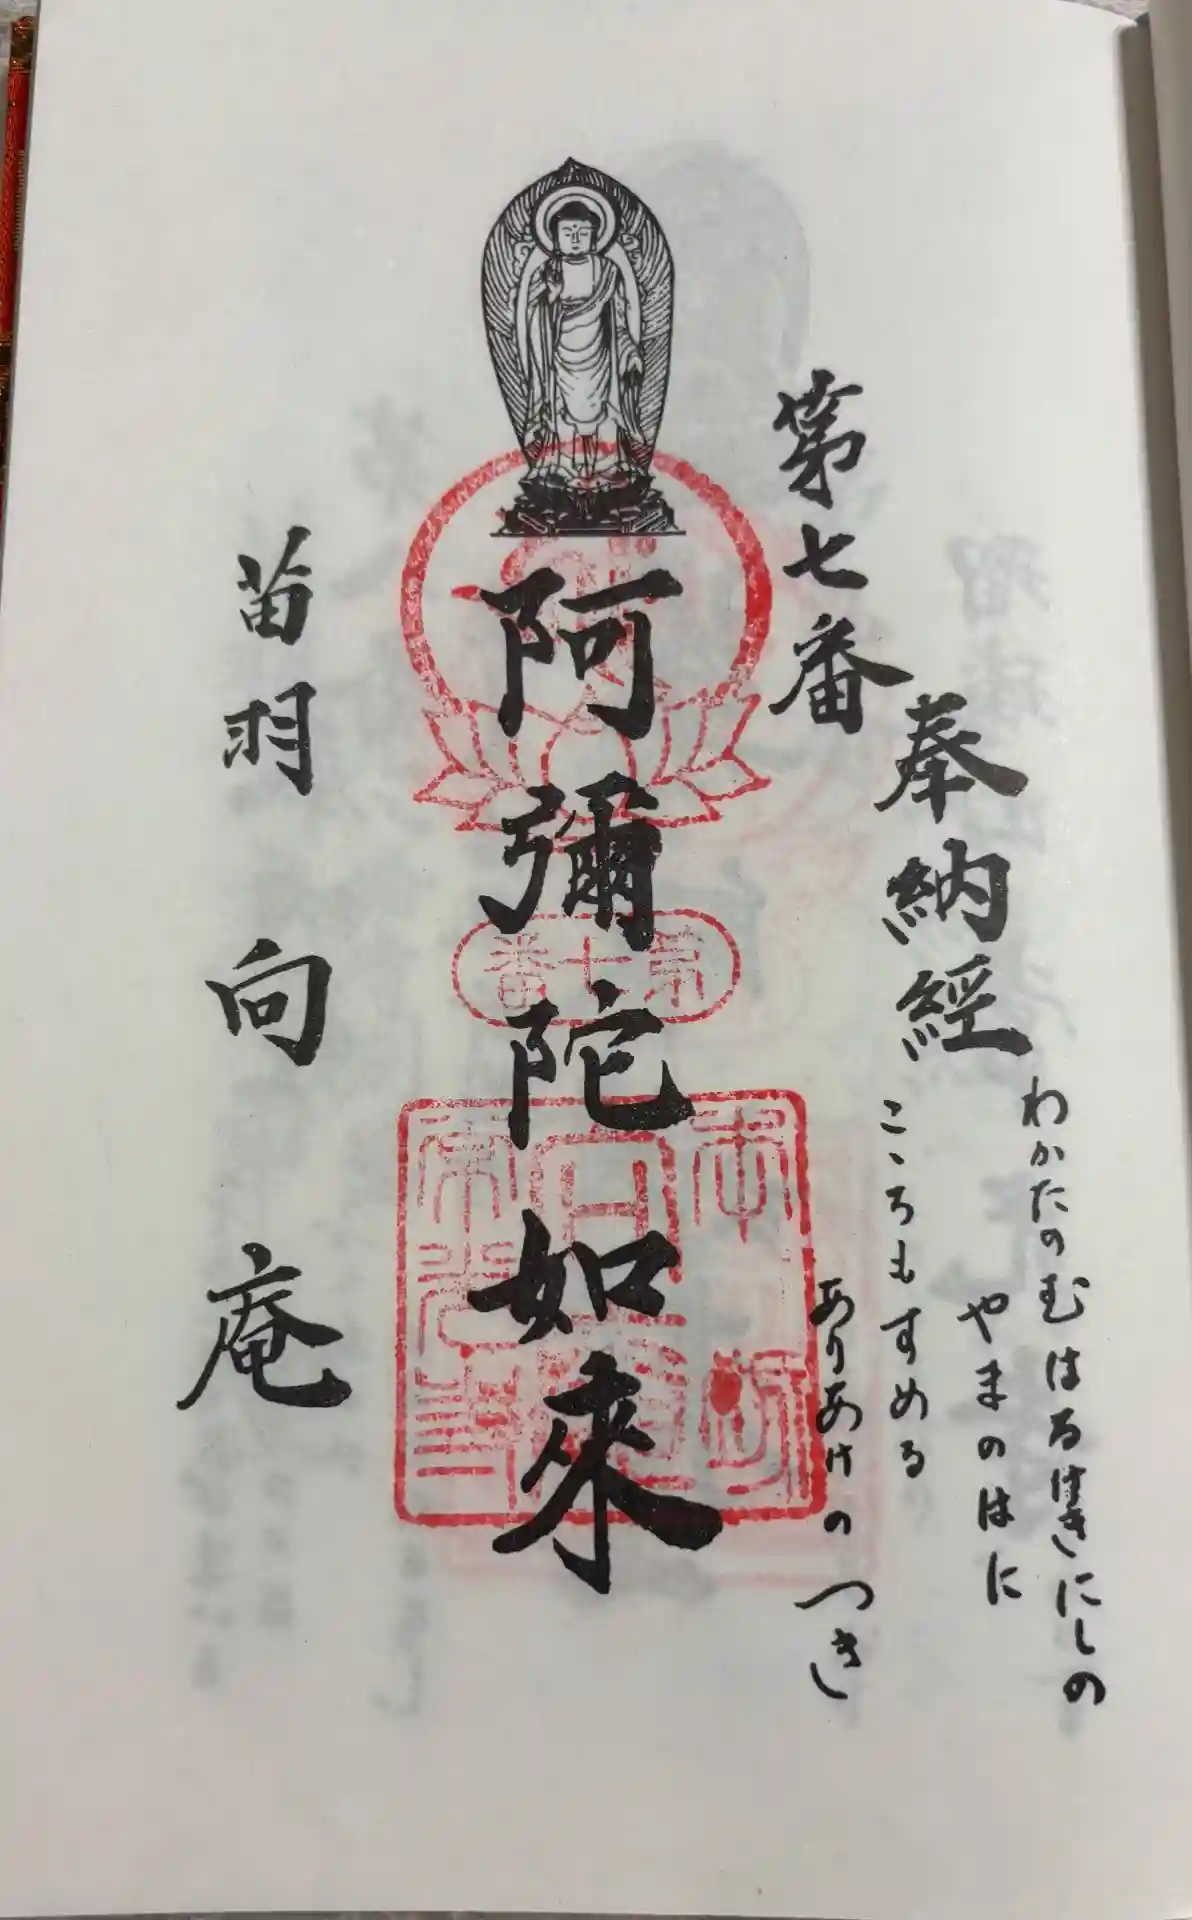 奉納經
第七番
わかたのむはるけきにしの
やまのはに
こゝろもすめる
ありあけのつき
阿彌陀如來
第七番
苗羽 向庵